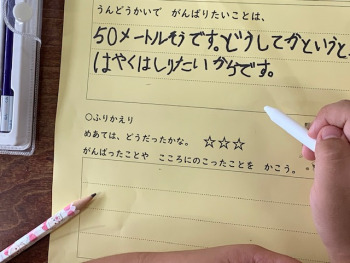 うんどうかいで がんばりたいことは、
50メートルそうです。どうしてかというと、
はやくはしりたいからです。
○ふりかえり
めあては、どうだったかな。 ☆☆☆
がんばったことや こころにのこったことを かこう。